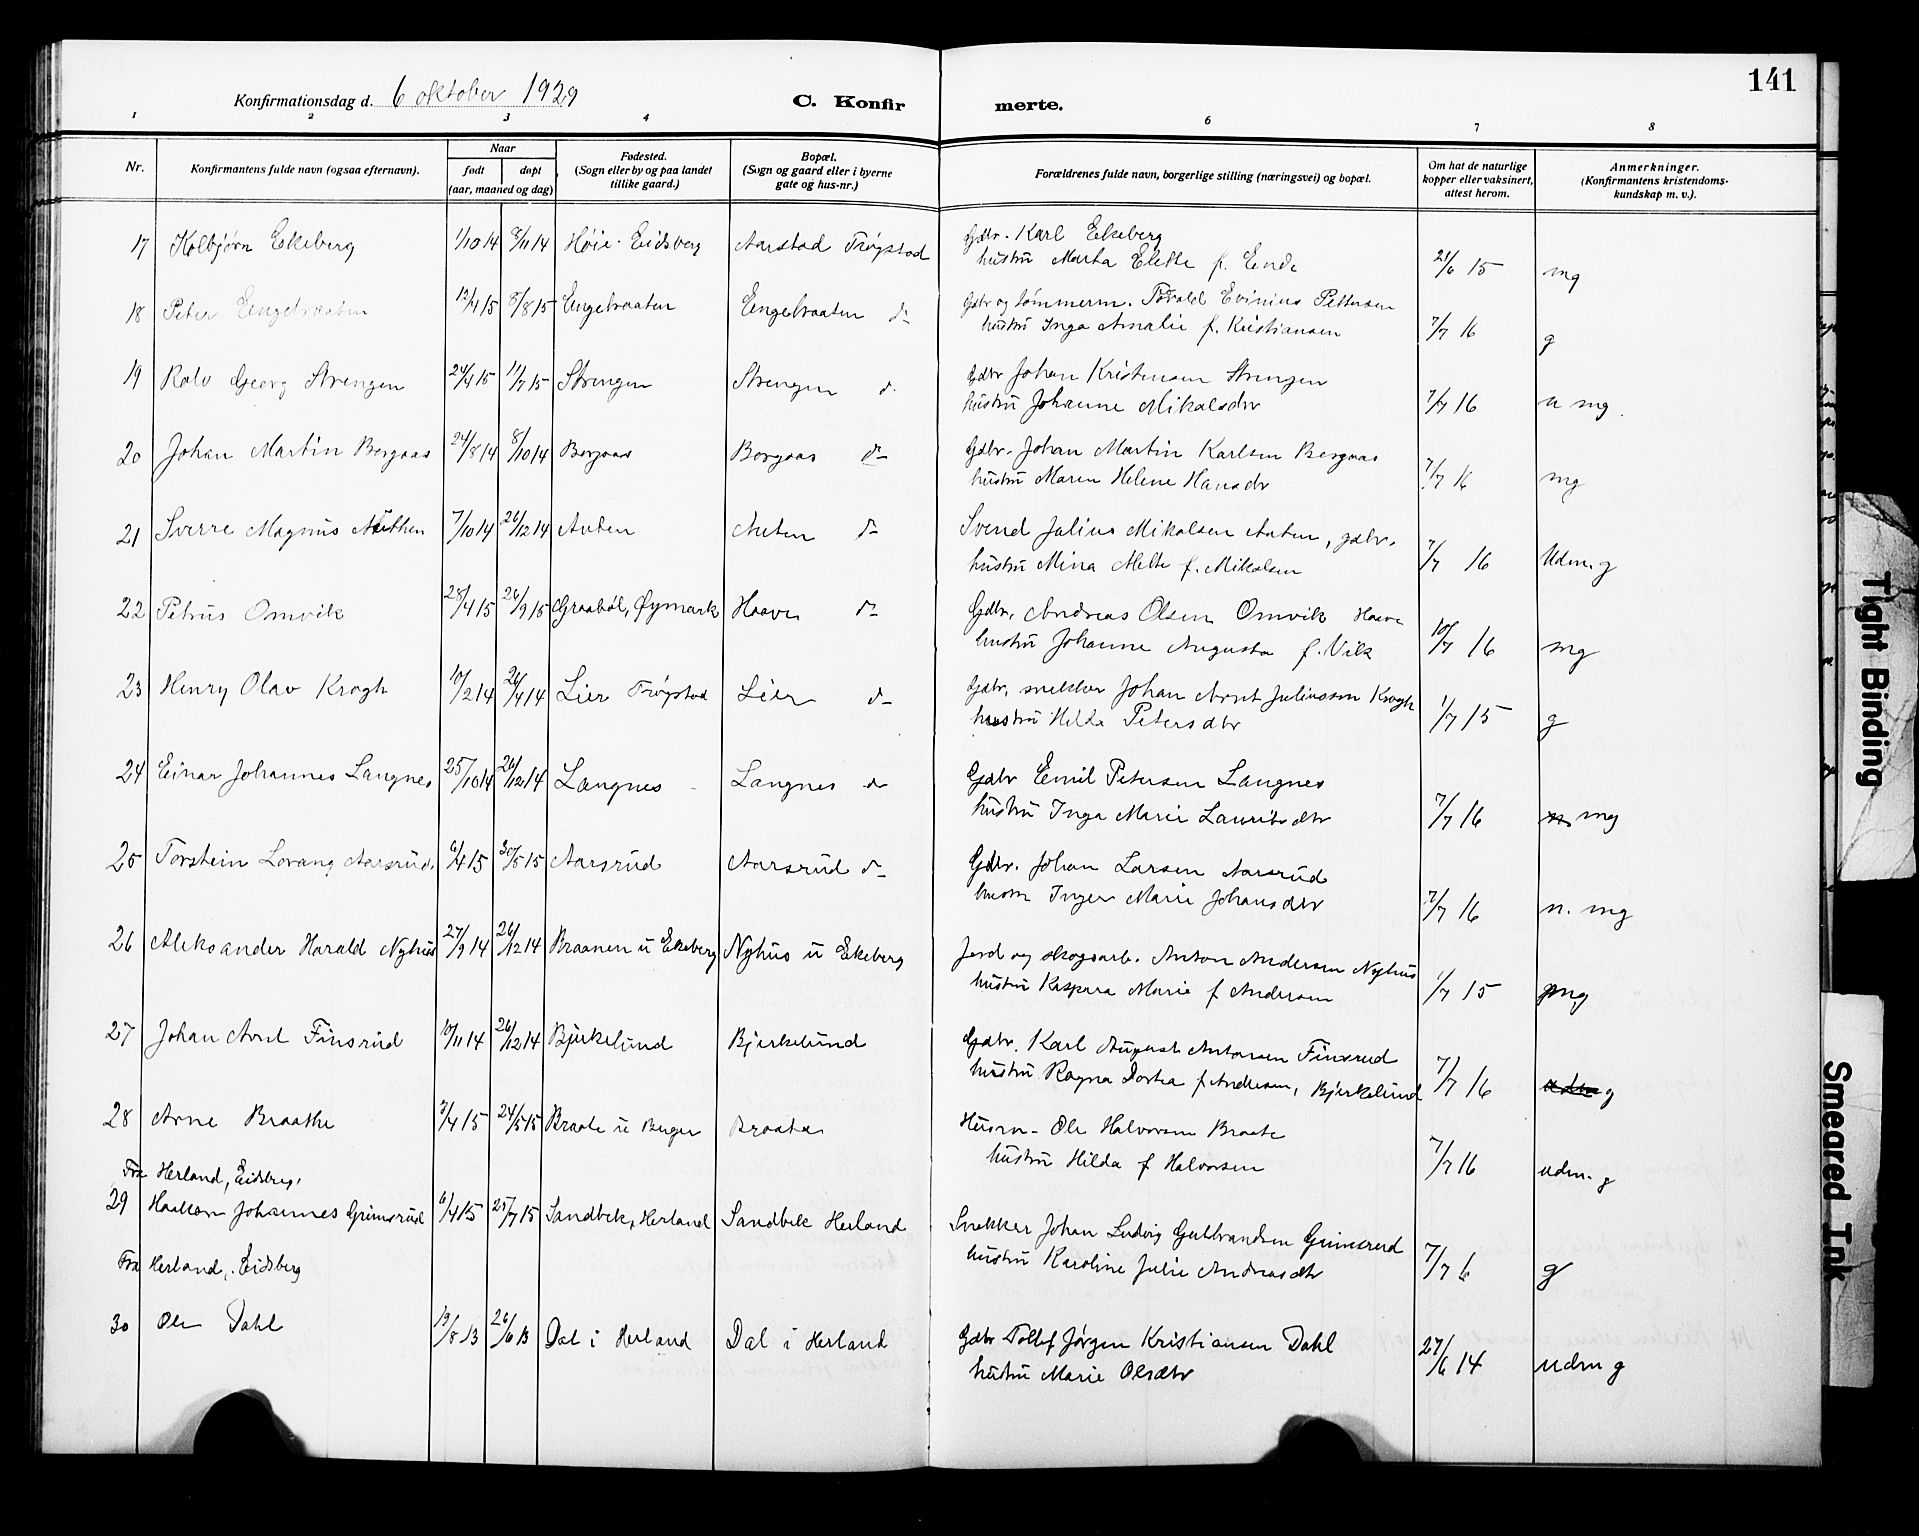 141
Konfirmationsdag d. 6 oktober 1929 C. Konfir merte.
1 2 3 4 6 7 8
Nr. Konfirmantens fulde navn (ogsaa efternavn). Naar født døpt (aar, maaned og dag) Fødested. (Sogn eller by og paa landet tillike gaard.) Bopæl. (Sogn og gaard eller i byerne gate og hus-nr.) Forældrenes fulde navn, borgerlige stilling (næringsvei) og bopæl. Om hat de naturlige kopper eller vaksinert, attest herom. Anmerkninger. (Konfirmantens kristendoms-kundskap m. v.).
17 Kolbjørn Ekeberg 1/10 14 8/11 14 Høie Eidsberg Aarstad Trøgstad Gdbr. Karl Ekeberg
hustru Marta Elette f. Ende 21/6 15 mg
18 Peter Engebraaten 12/4 15 8/8 15 Engebraaten Engebraaten do Gdbr og tømmerm. Torvald Evinius Pettersen
hustru Inga Amalie f. Kristiansen 7/7 16 g
19 Rolv Georg Strengen 24/4 15 11/7 15 Strengen Strengen do Gdbr Johan Kristensen Strengen
hustru Johanne Mikalsdtr 7/7 16 n mg.
20 Johan Martin Bergaas 24/8 14 8/10 14 Bergaas Borgaas do Gdbr. Johan Martin Karlsen Bergaas
hustru Maren Helene Hansdtr 7/7 16 mg
21 Sverre Magnus 7/10 14 26/12 14 Auten Auten do Svend Julius Mikalsen Auten, gdbr.
hustru Mina Mette f. Mikalsen 7/7 16 Udm. g
22 Petrus Omvik 28/4 15 26/9 15 Graabøl, Øymark Haave do Gdbr. Andreas Olsen Omvik Haave
hustru Johanne Augusta f. Vik 10/7 16 mg
23 Henry Olav Krogh 10/2 14 26/4 14 Lier Trøgstad Lier do Gdbr, snekker Johan Arnt Juliussen Krogh
hustru Hilda Petersdtr 1/7 15 g
24 Einar Johannes Langnes 25/10 14 26/12 14 Langnes Langnes do Gdbr Emil Petersen Langnes
hustru Inga Marie Lauritsdtr 7/7 16 mg
25 Torstein Lorang Aarsrud 6/4 15 30/5 15 Aarsrud Aarsrud do Gdbr. Johan Larsen Aarsrud
hustru Inger Marie Johansdtr 7/7 16 n. mg
26 Aleksander Harald Nyhus 27/9 14 26/12 14 Braanen u Ekeberg Nyhus u Ekeberg Jord og skogsarb. Anton Andersen Nyhus
hustru Kaspara Marie f Andersen 1/7 15 mg
27 Johan Arnt Finsrud 10/11 14 26/12 14 Bjerkelund Bjerkelund Gdbr. Karl August Antonsen Finsrud
hustru Ragna Dortea f Andersen, Bjerkelund 7/7 16 udm g
28 Arne Braathe 3/4 15 24/5 15 Braate u Berger Braate Husm. Ole Halvorsen Braate
hustru Hilda f Halvorsen 7/7 16 udm. g
Fra Herland, Eidsberg,
29 Haakon Johannes Grimsrud 6/4 15 25/7 15 Sandbek, Herland Sandbek Herland Snekker Johan Ludvig Gulbrandsen Grimsrud
hustru Karoline Julie Andreasdtr 7/7 6 g
Fra Herland, Eidsberg
30 Ole Dahl 19/8 13 26/6 13 Dal i Herland Dal i Herland Gdbr Tollef Jørgen Kristiansen Dahl
hustru Marie Olsdtr 27/6 14 udm g
Tight Binding
Smeared Ink